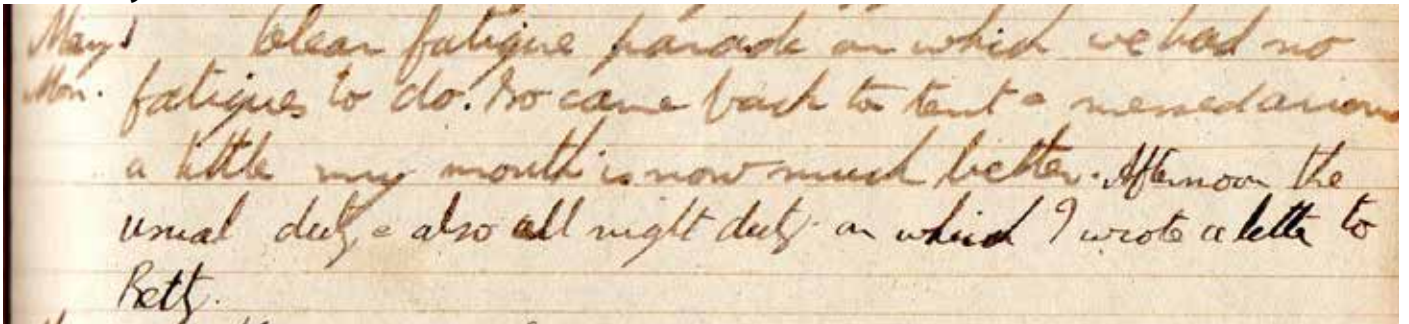 May 1 Clean fatigue parade on which we had no
Mon. fatigues to do. So came back to tent & messed around
a little my mouth is now much better. Afternoon the
usual duty & also all night duty on which I wrote a letter to
Betty.